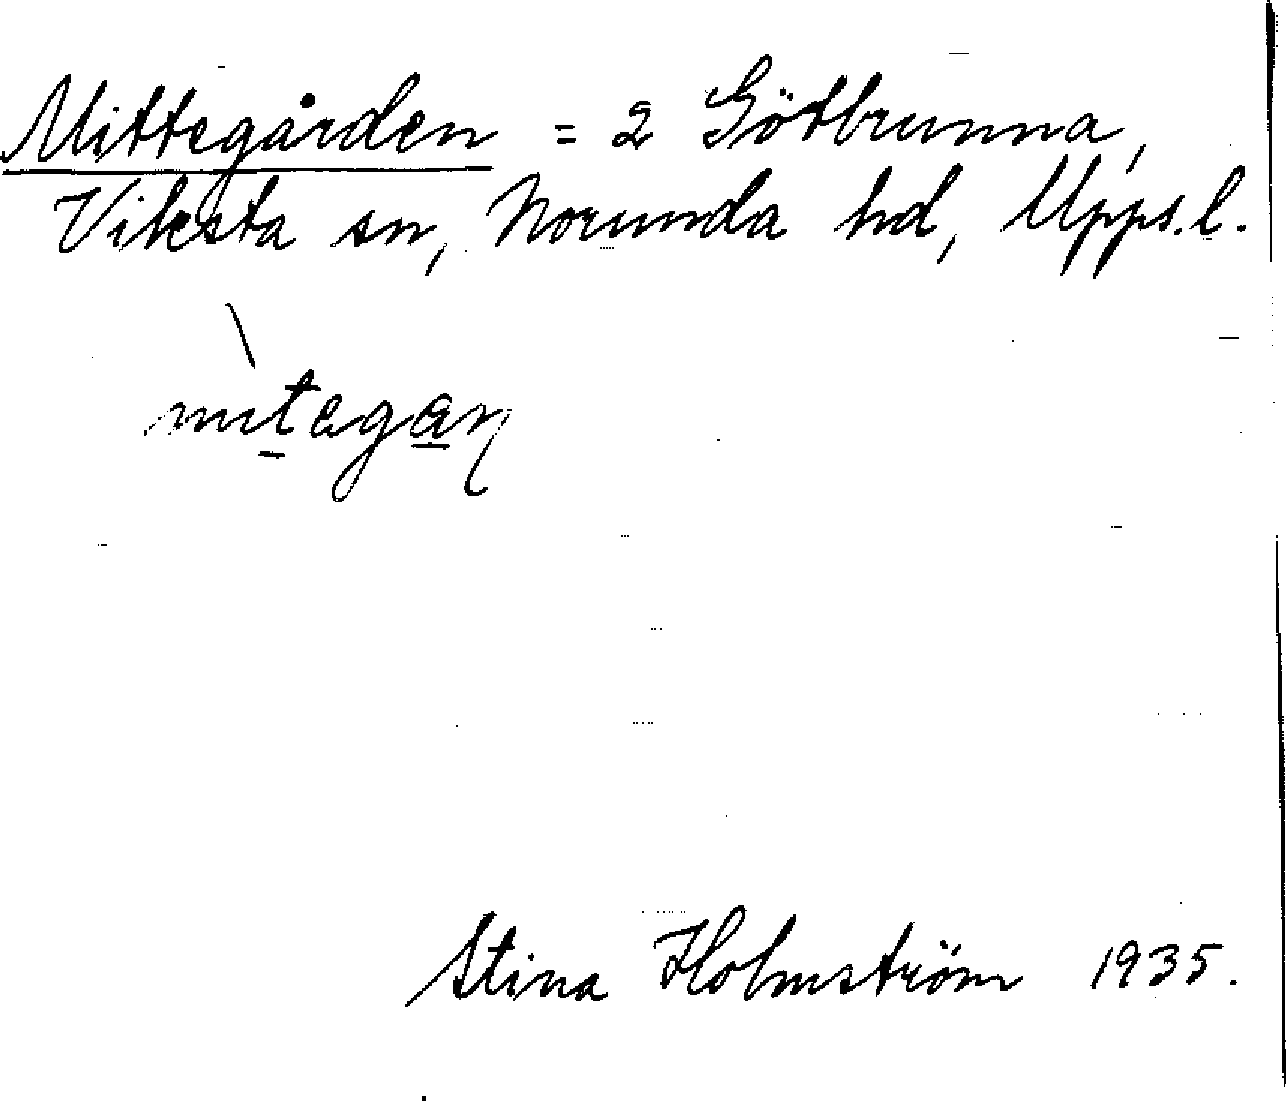 Mittegården = 2 Götbrunna,
Viksta sn, Norunda hd, Upps. l.
mìtegaɳ
Stina Holmström 1935.